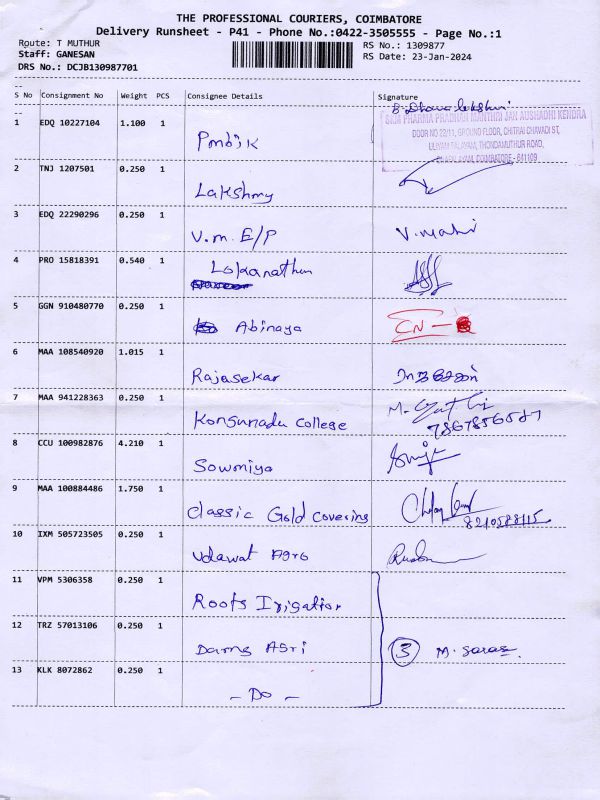 THE PROFESSIONAL COURIERS, COIMBATORE
Delivery Runsheet - P41 - Phone No.:0422-3505555 - Page No.:1
Route: T MUTHUR
Staff: GANESAN
DRS No.: DCJB130987701
RS No.: 1309877
RS Date: 23-Jan-2024
S No Consignment No Weight PCS Consignee Details Signature
SRIM PHARMA PRADHAN MANTHRI JAN AUSHADHI KENDRA
DOOR NO 22/11, GROUND FLOOR, CHITRAI CHAVADI ST,
THONDAMUTHUR ROAD,
COIMBATORE - 641109
1 EDQ 10227104 1.100 1 Pmbjk
2 TNJ 1207501 0.250 1 Lakshmy
3 EDQ 22290296 0.250 1 V.m. E/P V. mahi
4 PRO 15818391 0.540 1 Lokanathan
5 GGN 910480770 0.250 1 Abinaya CN -
6 MAA 108540920 1.015 1 Rajasekar
7 MAA 941228363 0.250 1 Kongunadu College M.
7867856587
8 CCU 100982876 4.210 1 Sowmiya
9 MAA 100884486 1.750 1 Classic Gold Covering
8210588115
10 IXM 505723505 0.250 1 Udawat Agro
11 VPM 5306358 0.250 1 Roots Irrigation
12 TRZ 57013106 0.250 1 Agri 3 M. Saras.
13 KLK 8072862 0.250 1 - Do -